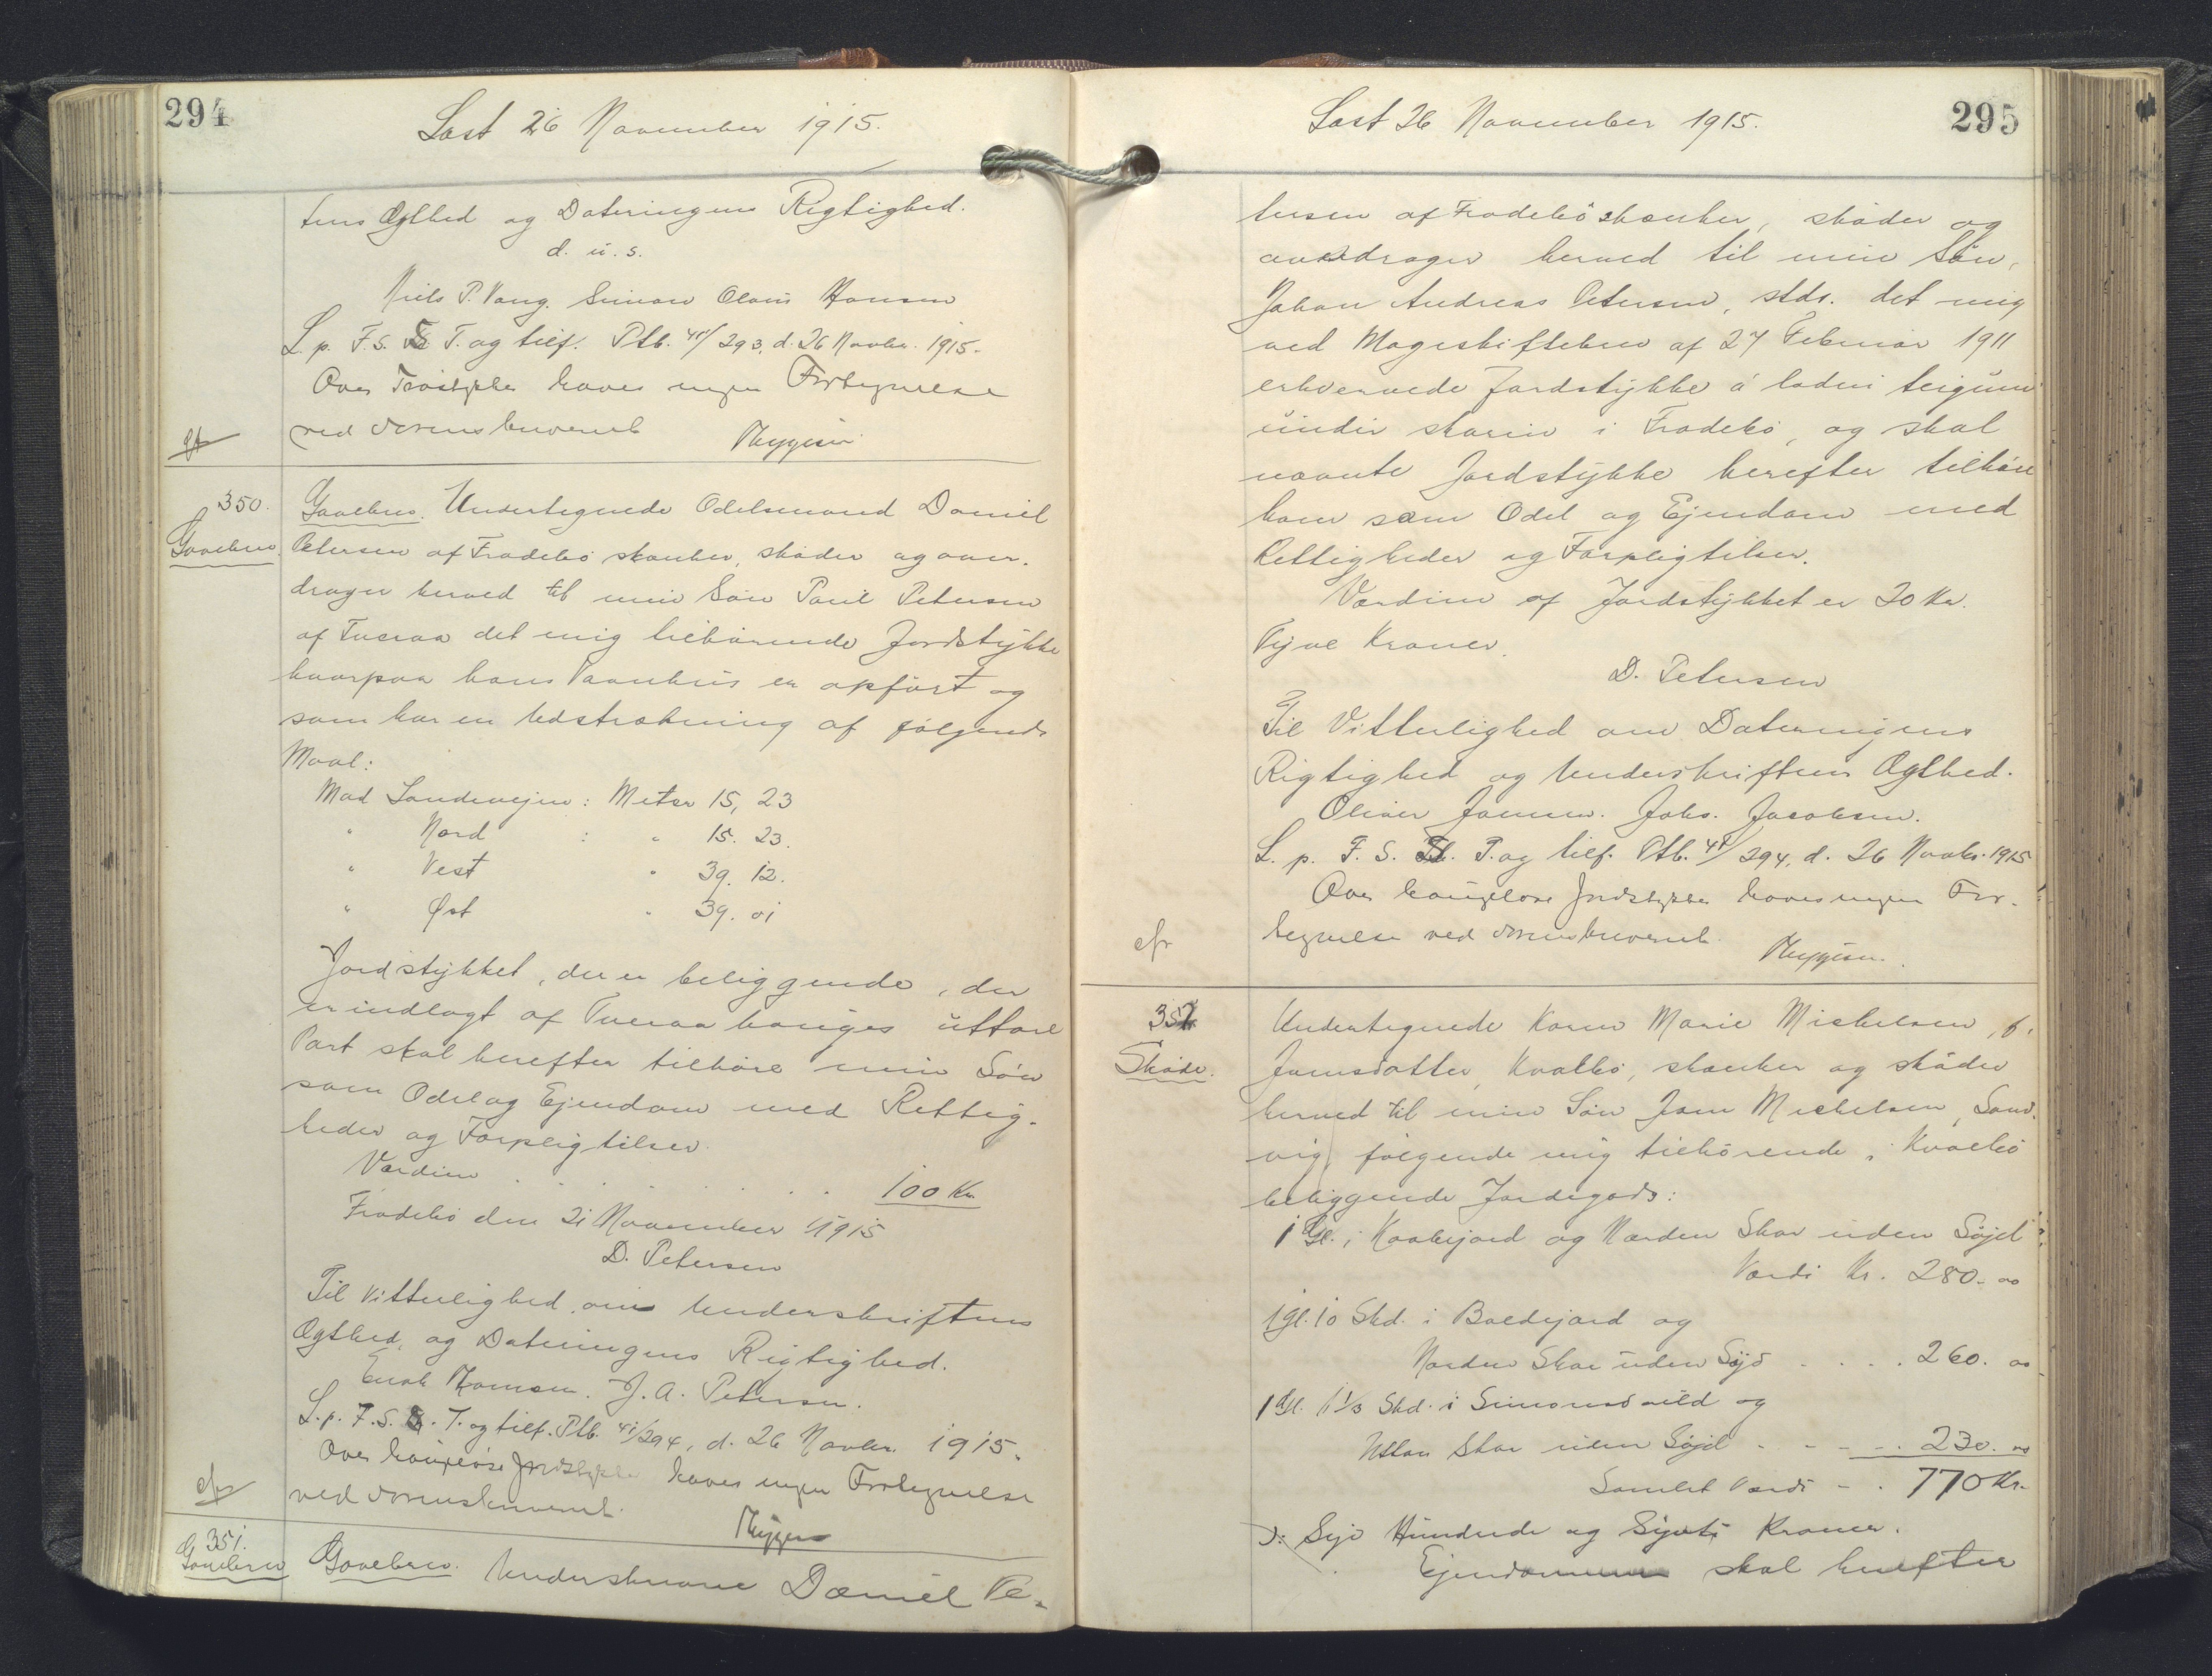 294
Læst 26 November 1915.
tens Ægthed og Dateringens Rigtighed.
d. u. s.
Niels P. Vang. Simon Olaus Hansen
L. p. F. S. T. og tilf. Ptb. 41/293, d. 26 Novbr. 1915.
Over Jordstykker haves ingen Fortegnelse
ved Sorenskriveriet
cfr
350.
Gavebrev. Undertegnede Odelsmand Daniel
Gavebrev
Petersen af Fradebø skænker, skøder og over-
drager herved til min Søn Poul Petersen
af Tveraa det mig tilhørende Jordstykke
hvorpaa hans Vaanhus er opført og
som har en Udstrækning af følgende
Maal:
Mod Landevejen: Meter 15,23
" Nord : " 15.23.
" Vest " 39.12.
" Øst " 39.01
Jordstykket, der er beliggende, der
er indlagt af Tveraa hauges uttare
Part skal herefter tilhøre min Søn
som Odel og Ejendom med Rettig-
heder og Forpligtelser.
Værdien . . . . . . 100 Kr.
Frodebø den 21 November 1915
D. Petersen
Til Vitterlighed om Underskriftens
Ægthed og Dateringens Rigtighed.
Enok Thomsen. J. A. Petersen.
L. p. F. S. T. og tilf. Ptb. 41/294, d. 26 Novbr. 1915.
Over haugeløse Jordstykker haves ingen Fortegnelse
cfr
ved Sorenskriveriet.
351.
Gavebrev
Gavebrev. Underskrevne Daniel Pe-
295
Læst 26 November 1915.
tersen af Frodebø skænker, skøder og
overdrager herved til min Søn,
Johan Andreas Petersen, stds. det mig
ved Mageskiftebrev af 27 Februar 1911
erhvervede Jordstykke á ladni teigum
undir skorin i Frodebø, og skal
nævnte Jordstykke herefter tilhøre
ham som Odel og Ejendom med
Rettigheder og Forpligtelser.
Værdien af Jordstykket er 20 Kr.
Tyve Kroner.
D. Petersen
Til Vitterlighed om Dateringens
Rigtighed og Underskriftens Ægthed.
Oliver Joensen. Johs. Jacobsen.
L. p. F. S. T. og tilf. Ptb. 41/294, d. 26 Novbr. 1915
Over haugeløse Jordstykker haves ingen For-
cfr
tegnelse ved Sorenskriveriet.
352
Skøde.
Undertegnede Karen Marie Michelsen, f.
Joensdatter, Kvalbø, skænker og skøder
herved til min Søn Joen Michelsen, Sand-
vig, følgende mig tilhørende i Kvalbø
beliggende Jordegods:
1 Gl. i Kaabejord og Norden Skor uden Søjd
Værdi Kr. 280. 00
1 Gl. 10 Skd. i Boldejord og
Norden Skor uden Søjd . . . . 260. 00
1 Gl. 11 1/3 Skd. i Simonsdauild og
Uttan Skor uden Søjd . . . . 230. 00
Samlet Værdi - . 770 Kr.
ɔ: Syv Hundrede og Syvti Kroner.
Ejendommene skal herefter